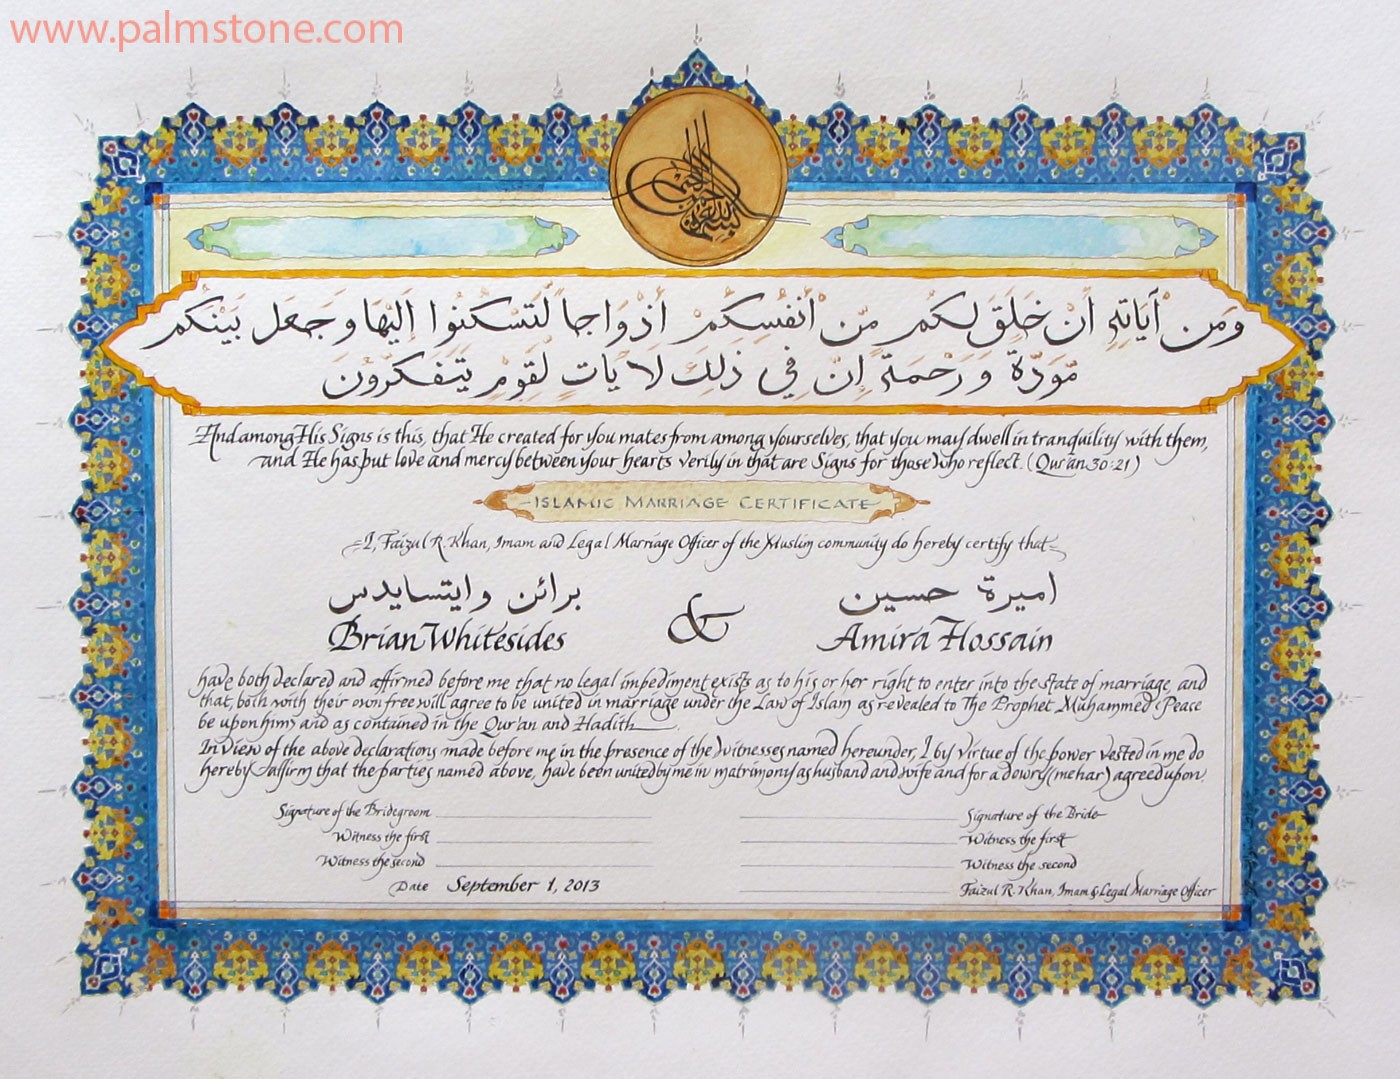 www.palmstone.com
بسم الله الرحمن الرحيم
وَمِنْ آيَاتِهِ أَنْ خَلَقَ لَكُم مِّنْ أَنفُسِكُمْ أَزْوَاجًا لِّتَسْكُنُوا إِلَيْهَا وَجَعَلَ بَيْنَكُم
مَّوَدَّةً وَرَحْمَةً إِنَّ فِي ذَلِكَ لَآيَاتٍ لِّقَوْمٍ يَتَفَكَّرُونَ
And among His Signs is this, that He created for you mates from among yourselves, that you may dwell in tranquility with them,
and He has put love and mercy between your hearts verily in that are Signs for those who reflect. (Qur'an 30:21)
Islamic Marriage Certificate
I, Faizul R. Khan, Imam and Legal Marriage Officer of the Muslim community do hereby certify that
برائن وايتسايدس & اميرة حسين
Brian Whitesides Amira Hossain
have both declared and affirmed before me that no legal impediment exists as to his or her right to enter into the state of marriage, and
that, both with their own free will agree to be united in marriage under the Law of Islam as revealed to The Prophet Muhammed (Peace
be upon him) and as contained in the Qur'an and Hadith.
In view of the above declarations made before me in the presence of the Witnesses named hereunder, I by virtue of the power vested in me do
hereby affirm that the parties named above, have been united by me in matrimony as husband and wife and for a dowry (mehar) agreed upon.
Signature of the Bridegroom Signature of the Bride
Witness the first Witness the first
Witness the second Witness the second
Date September 1, 2013 Faizul R. Khan, Imam & Legal Marriage Officer